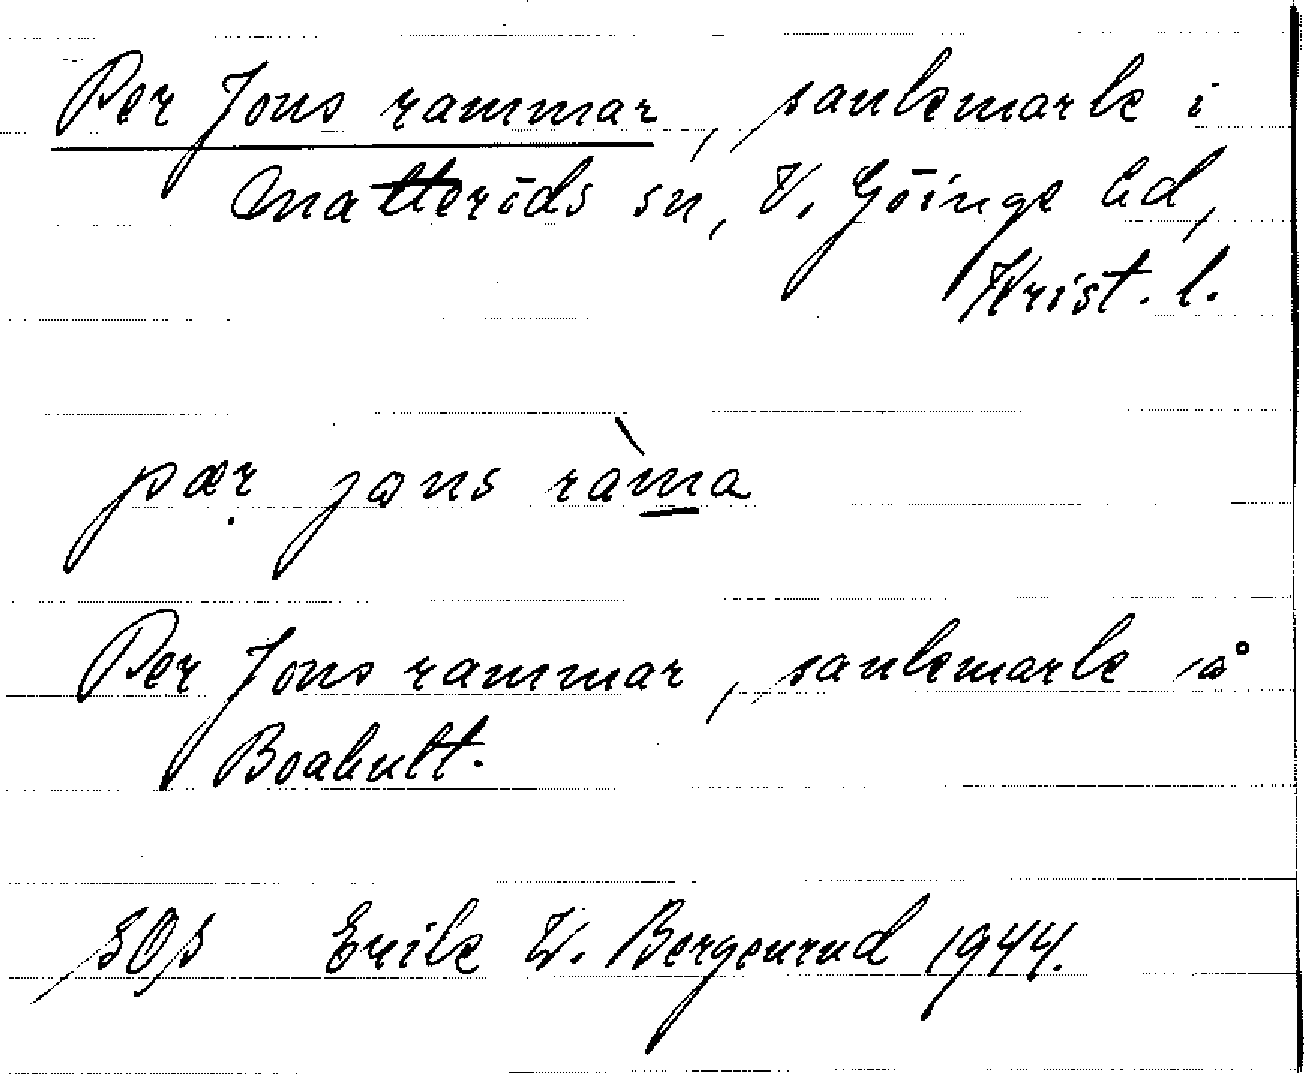 Per Jons rammar, sankmark i
Matteröds sn, V. Göinge hd,
Krist. l.
pær jons ràma
Per Jons rammar, sankmark å
Boahult.
SOS Erik W. Bergenrud 1944.